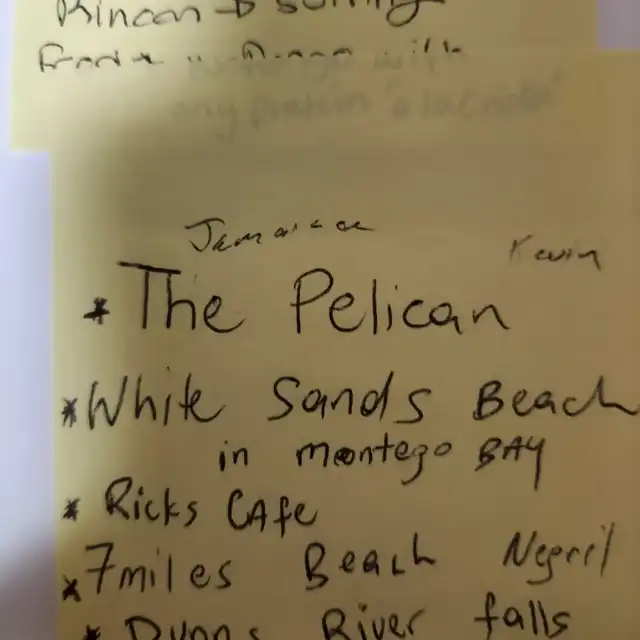 Rincon → surfing
with
any protein "a la criolla"
Jamaica
Kevin
* The Pelican
* White Sands Beach
in montego BAY
* Ricks CAfe
* 7miles Beach Negril
* Dunns River falls